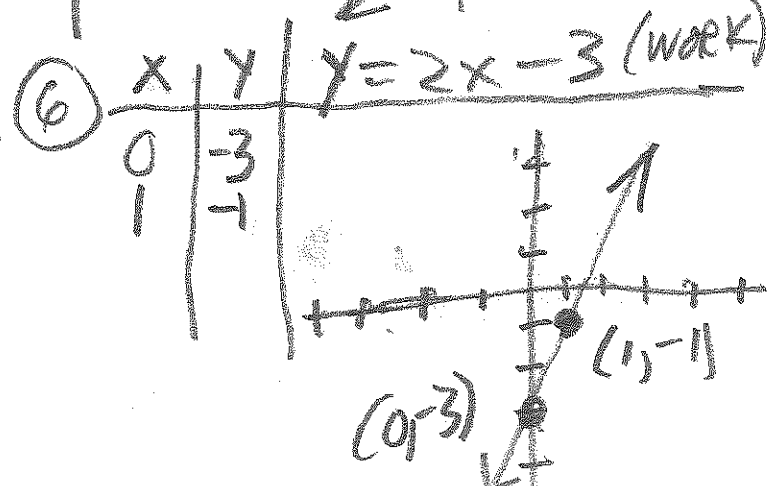 6 x y y=2x-3 (WORK)
0 -3
1 -1
(1,-1)
(0,-3)